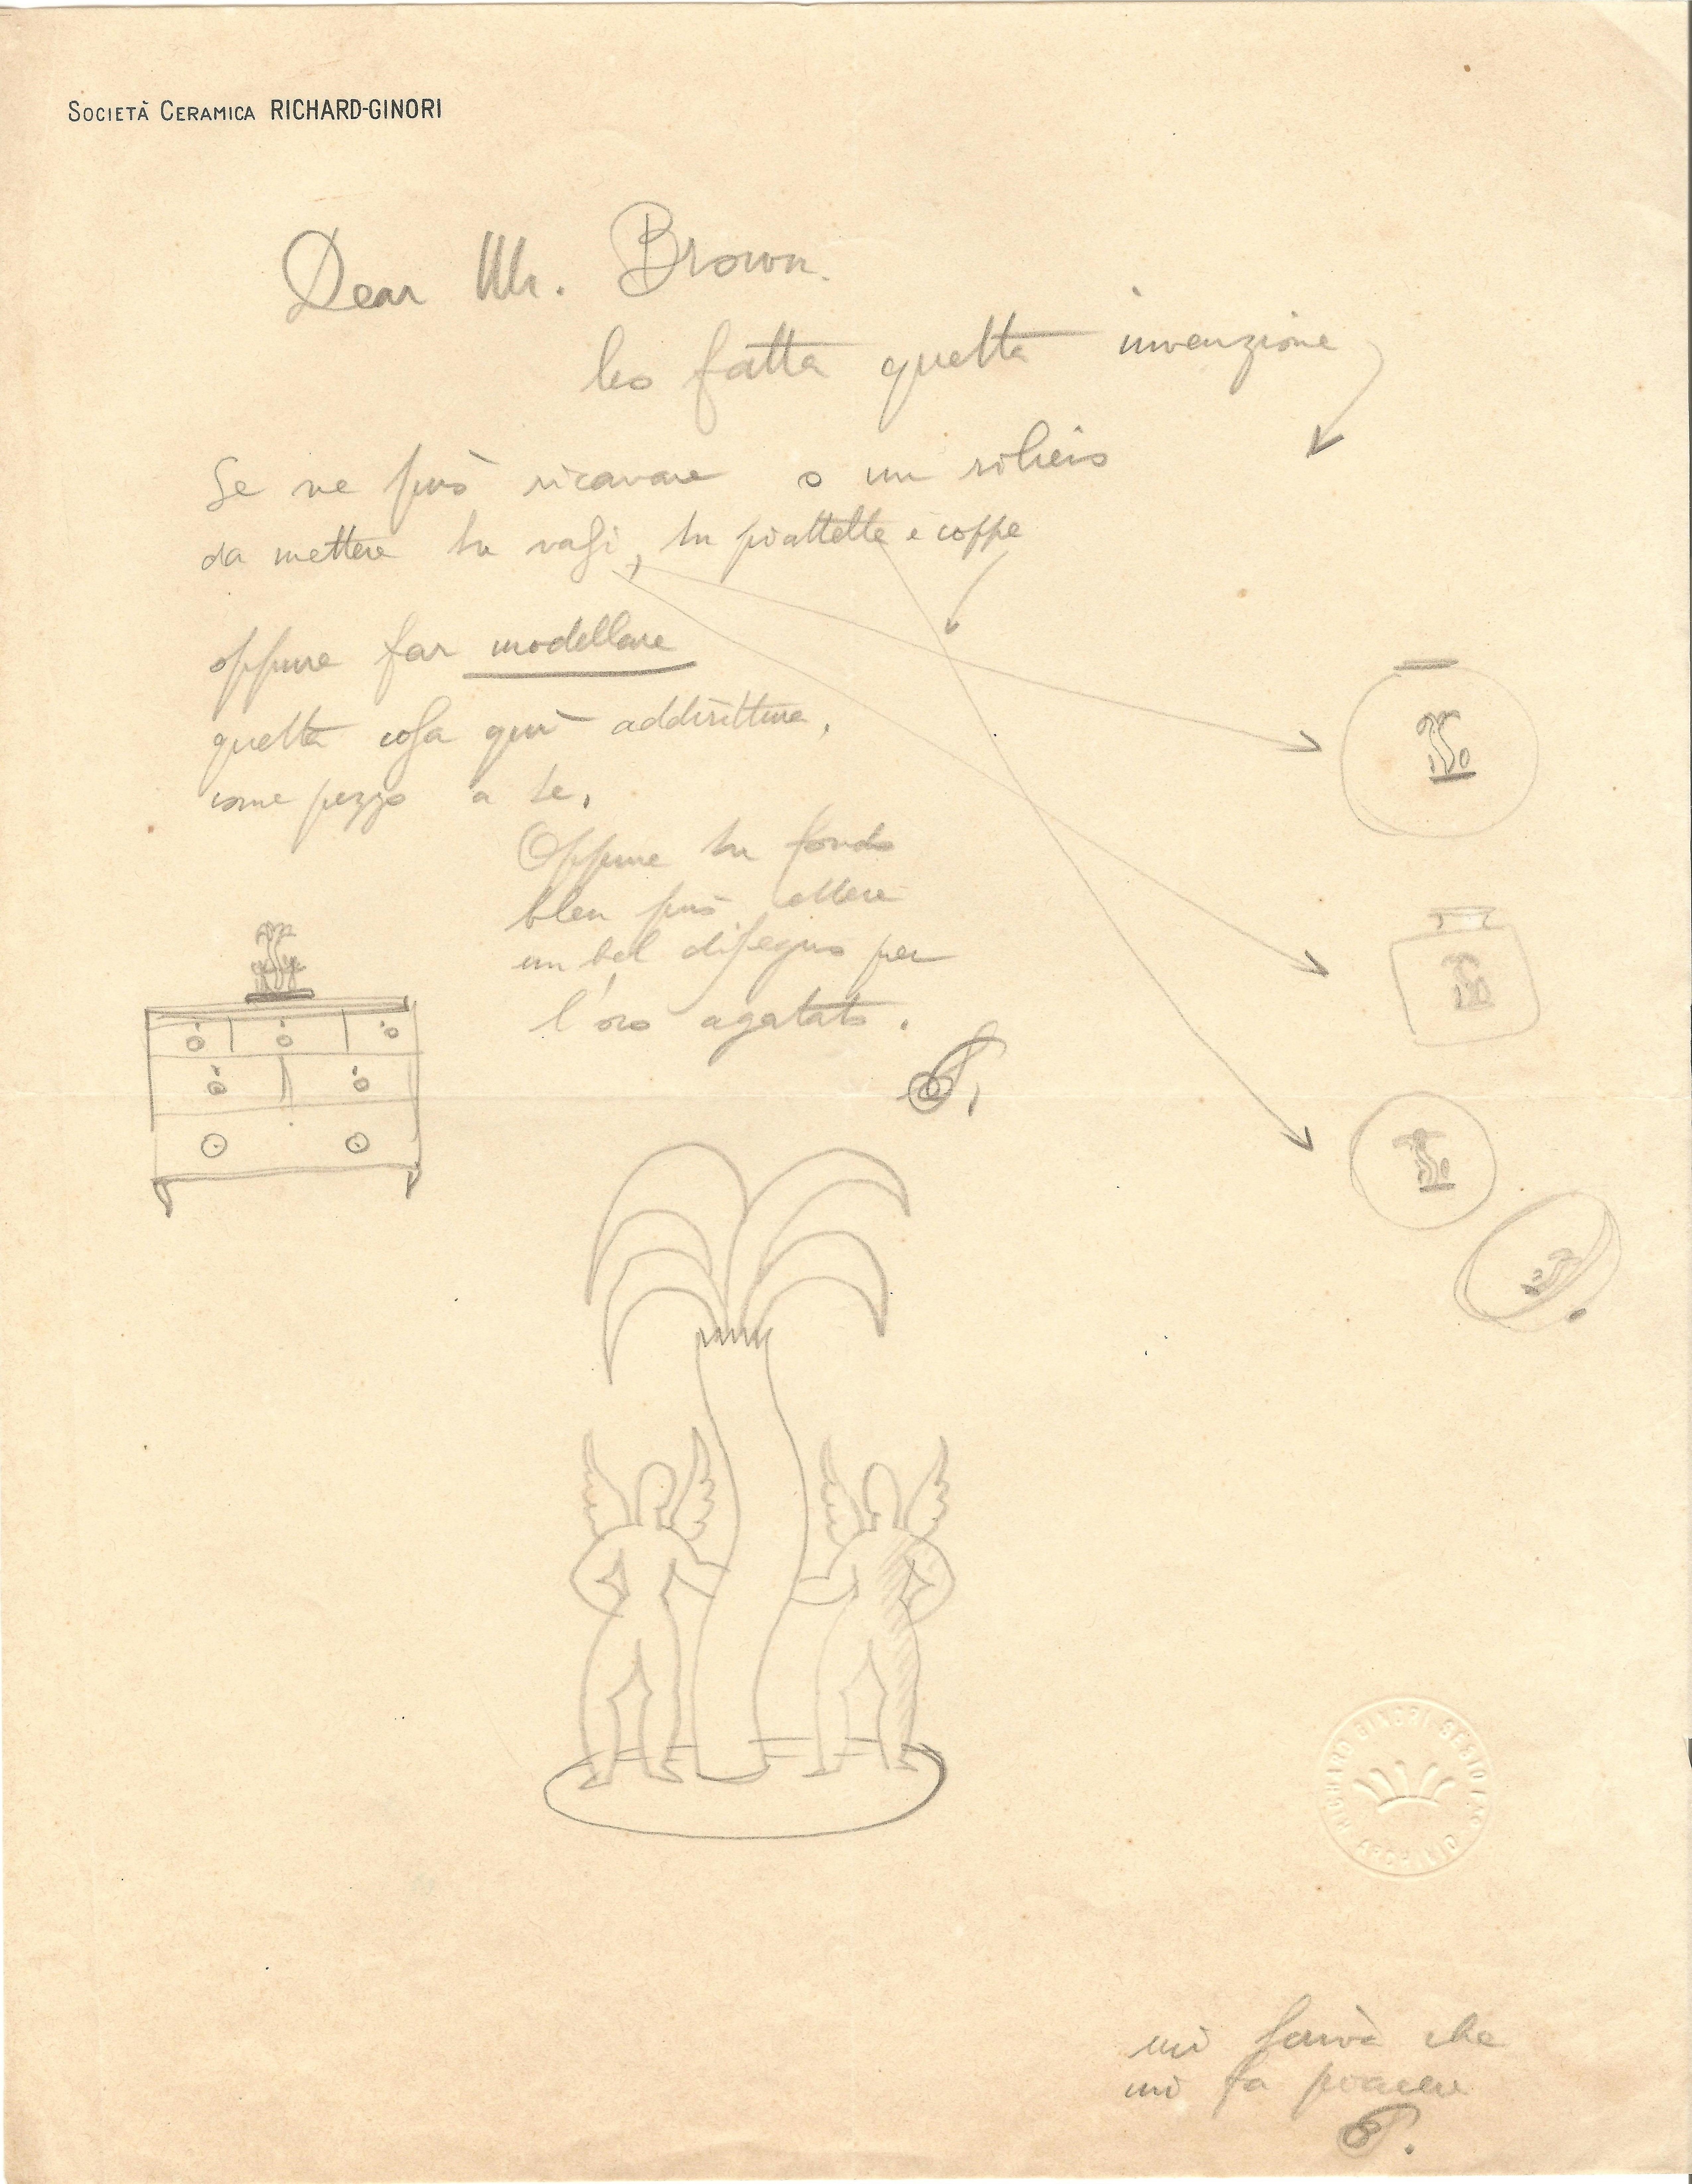 SOCIETÀ CERAMICA RICHARD-GINORI
Dear Mr. Brown.
ho fatta questa invenzione
Se ne può ricavare o un rilievo
da mettere su vasi, su piattelle e coppe
oppure far modellare
questa cosa qui addirittura,
come pezzo a se,
Oppure su fondo
bleu può essere
un bel disegno per
l'oro agatato.
RICHARD GINORI SESTO F.NO
ARCHIVIO
mi scriva che
mi fa piacere
P.